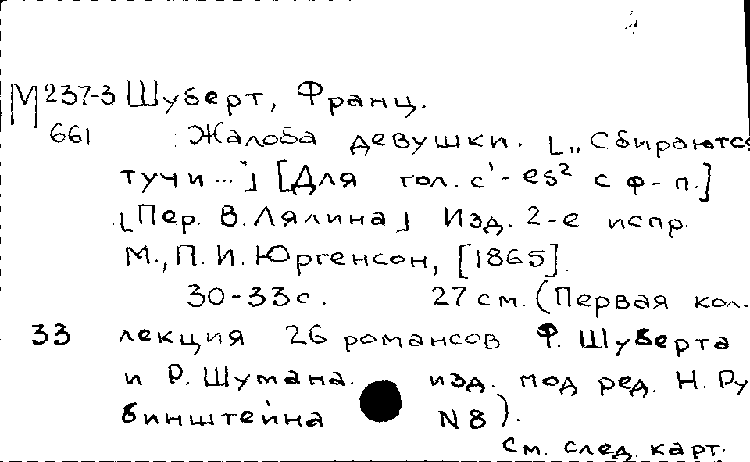 М 237-3 Шуберт, Франц.
661 Жалоба девушки. [„Сбираются
тучи..."] [Для гол. c¹-es² с ф-п.]
[Пер. В. Лялина] Изд. 2-е испр.
М., П. И. Юргенсон, [1865].
30-33 с. 27 см. (Первая кол-
33 лекция 26 романсов Ф. Шуберта
и Р. Шумана. изд. под ред. Н. Ру
бинштейна N 8).
См. след. карт.